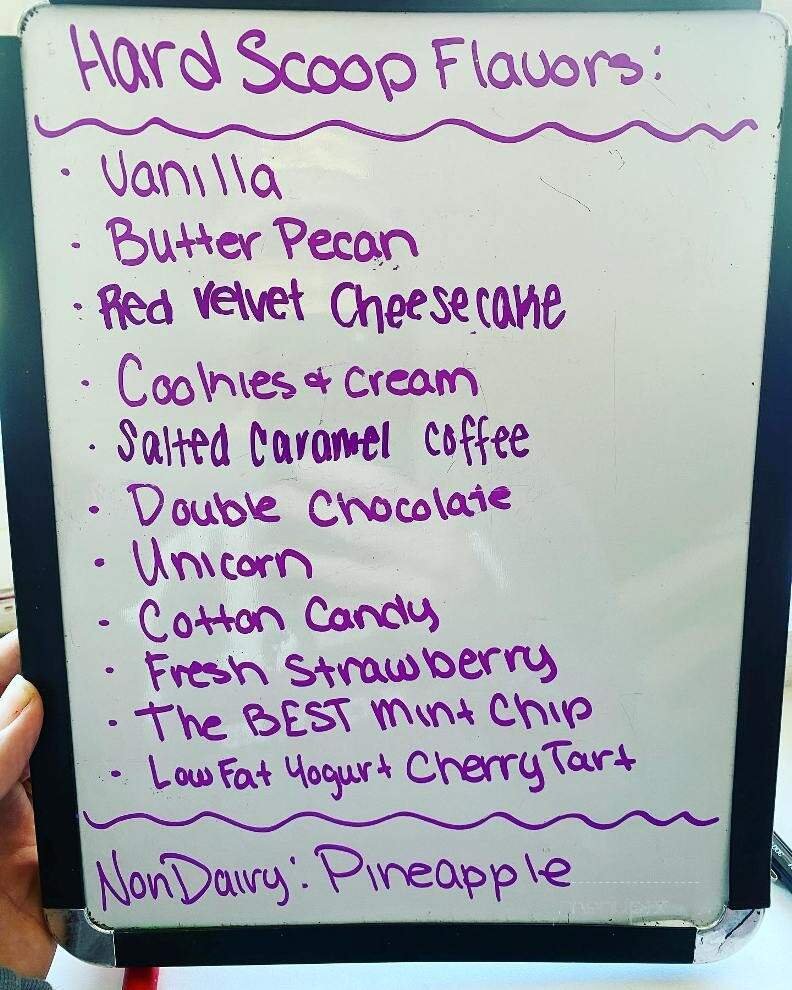 Hard Scoop Flavors:
• Vanilla
• Butter Pecan
• Red Velvet Cheesecake
• Cookies & Cream
• Salted Caramel Coffee
• Double Chocolate
• Unicorn
• Cotton Candy
• Fresh Strawberry
• The BEST Mint Chip
• Low Fat Yogurt Cherry Tart
Non Dairy: Pineapple